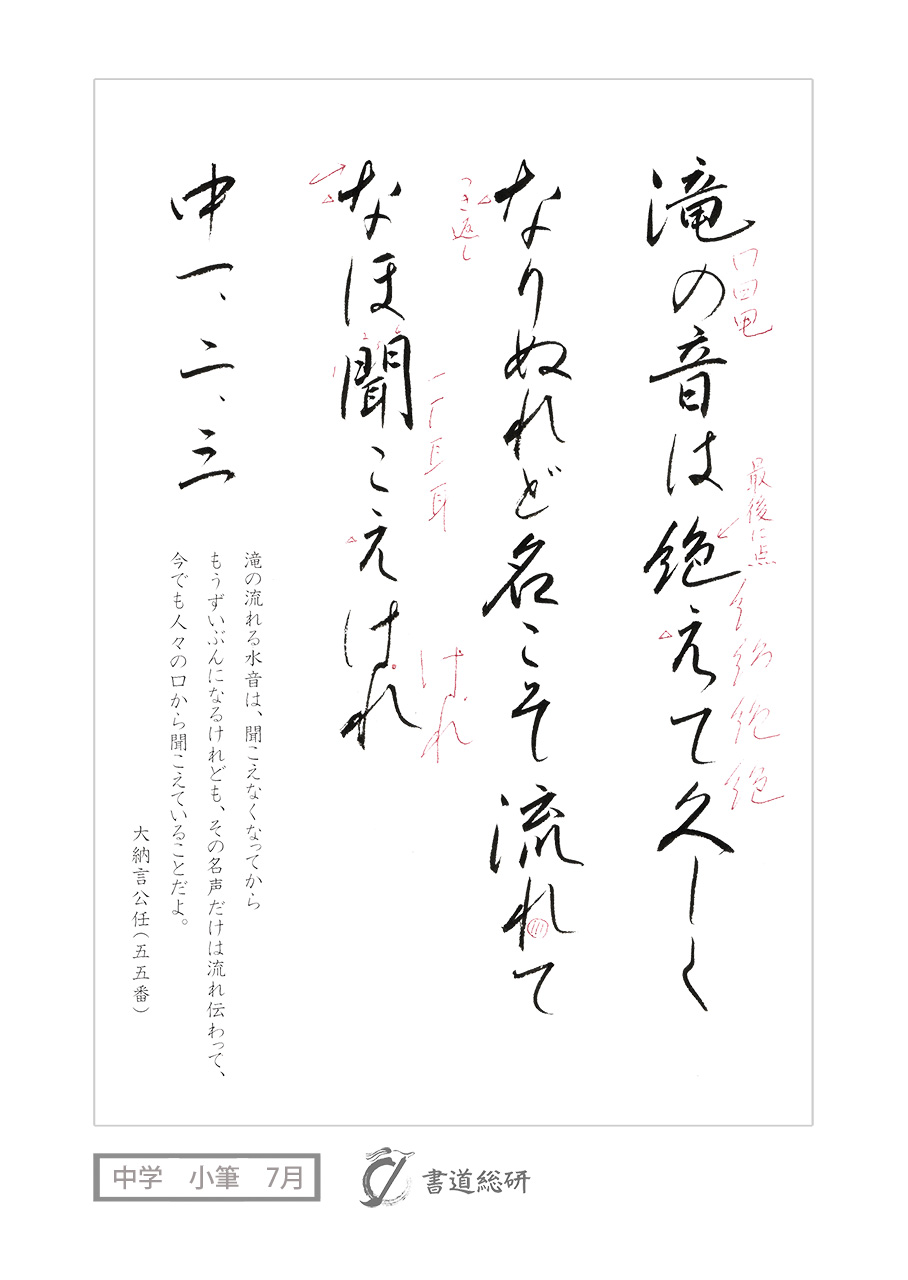 滝の音は絶えて久しく
口田电
最後に点
糹紹絶絶
なりぬれど名こそ流れて
つき返し
なほ聞こえけれ
一厂耳耳
けれ
中一、二、三
滝の流れる水音は、聞こえなくなってから
もうずいぶんになるけれども、その名声だけは流れ伝わって、
今でも人々の口から聞こえていることだよ。
大納言公任(五五番)
中学 小筆 7月
書道総研